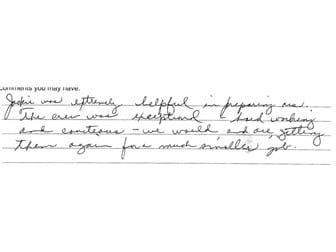 comments you may have.
Jackie was extremely helpful in preparing me.
The crew was exceptional - hard working
and courteous - we would, and are, getting
them again for a much smaller job.